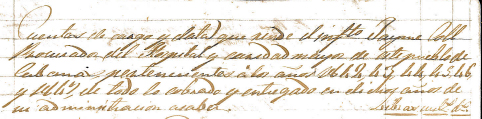 Cuentas de cargo y data que rinde el infto Jayme Coll
Procurador del Hospital y caridad mayor de este pueblo de
pertenecientes a los años 1842, 43, 44, 45, 46
y 1847 de todo lo cobrado y entregado en dichos años de
mi administracion